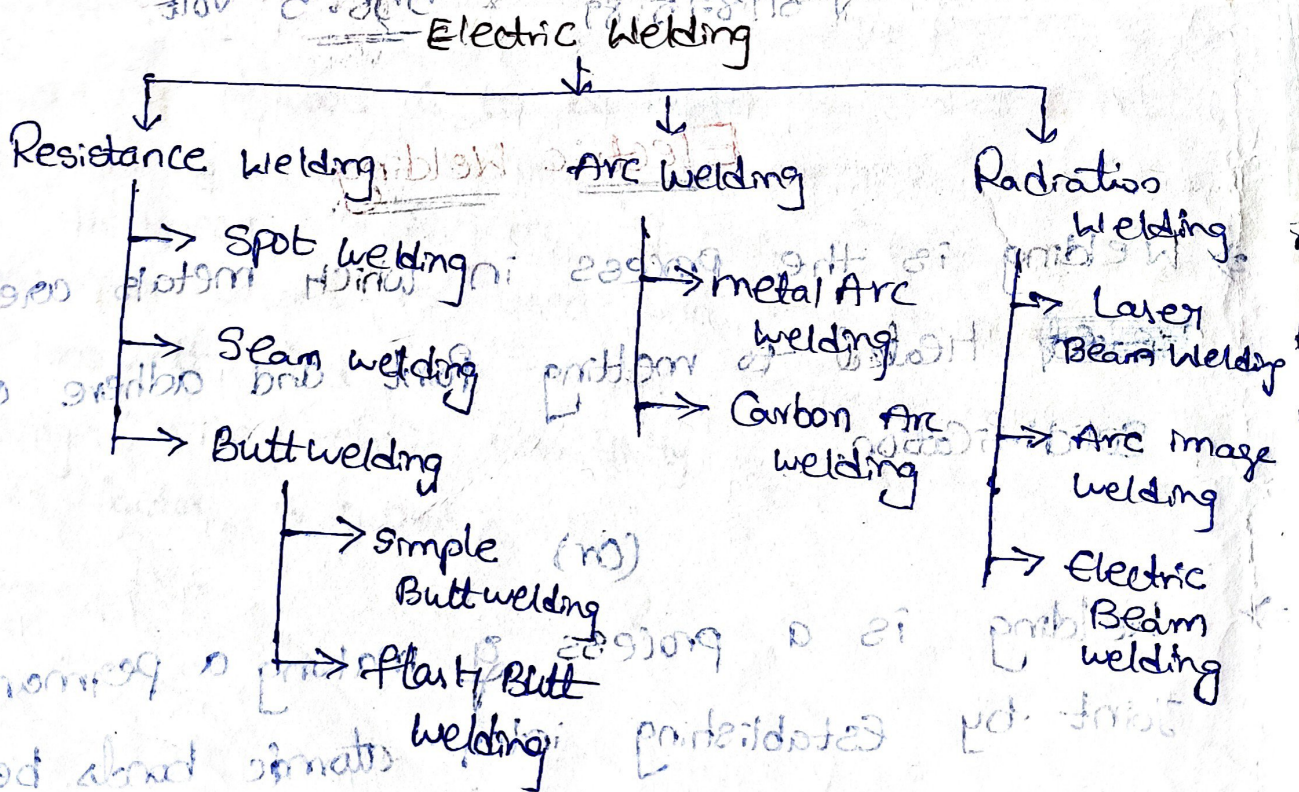 Electric Welding
Resistance Welding
Spot Welding
Seam Welding
Butt welding
Simple
Butt welding
flash Butt
welding
Arc Welding
metal Arc
welding
Carbon Arc
welding
Radiation
Welding
Laser
Beam Welding
Arc image
welding
Electric
Beam
welding